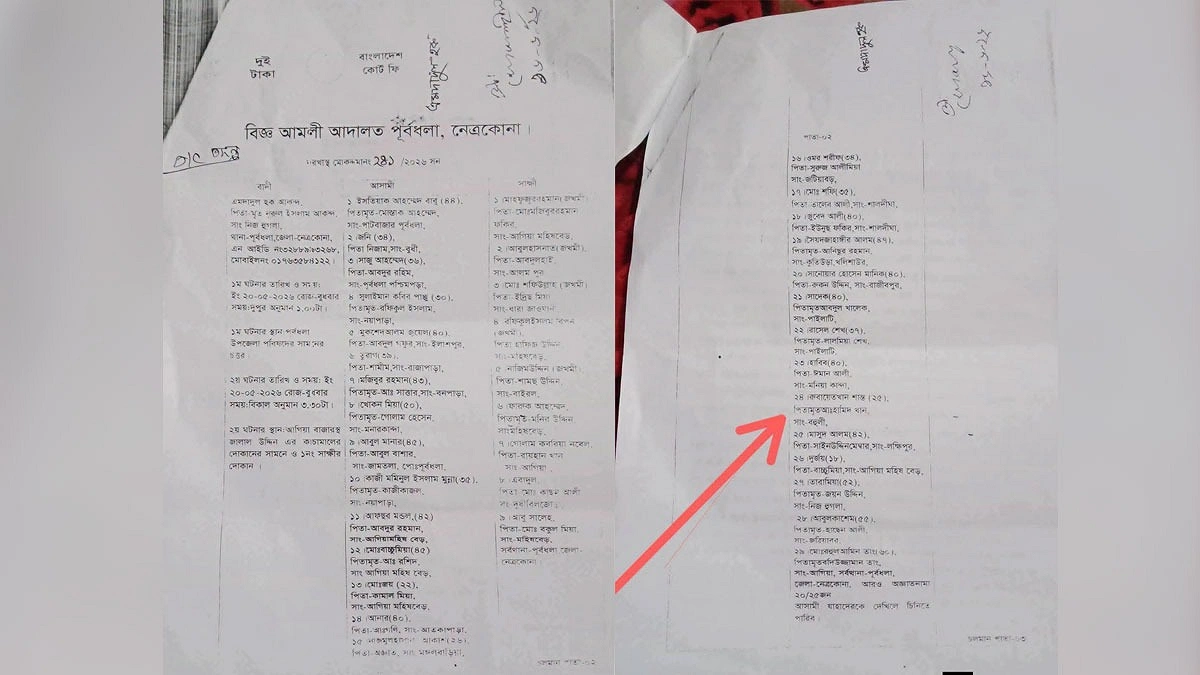 দুই
টাকা
বাংলাদেশ
কোর্ট ফি
এমদাদুল হক
বিজ্ঞ আমলী আদালত পূর্বধলা, নেত্রকোনা।
মোকদ্দমানং ২৪১ /২০২৬ সন
বাদী
এমদাদুল হক আকন্দ,
পিতা-মৃত নুরুল ইসলাম আকন্দ,
সাং নিজ হুগলা,
থানা-পূর্বধলা,জেলা-নেত্রকোনা,
এন আইডি নং৩২৮৮৯৮৩২৬৮,
মোবাইলনং ০১৭৬৩৫৮৪১২২।
১ম ঘটনার তারিখ ও সময়:
ইং ২০-০৫-২০২৬ রোজ-বুধবার
সময়:দুপুর অনুমান ১.০০টা।
১ম ঘটনার স্থান:পূর্বধলা
উপজেলা পরিষদের সামনের
চত্তর।
২য় ঘটনার তারিখ ও সময়: ইং
২০-০৫-২০২৬ রোজ-বুধবার
সময়:বিকাল অনুমান ৩.৩০টা।
২য় ঘটনার স্থান:আগিয়া বাজারস্থ
জালাল উদ্দিন এর কাচামালের
দোকানের সামনে ও ১নং সাক্ষীর
দোকান ।
আসামী
১ ইসতিয়াক আহম্মেদ বাবু (৪৪),
পিতামৃত-মোস্তাক আহম্মেদ,
সাং-পাটবাজার পূর্বধলা,
২ ।জনি (৩৪),
পিতা নিজাম,সাং-বুধী,
৩ ।সাজু আহম্মেদ(৩৬),
পিতা-আবদুর রহিম,
সাং-পূর্বধলা পশ্চিমপাড়া,
৪ সুলাইমান কবির পাপ্পু (৩০),
পিতামৃত-রফিকুল ইসলাম,
সাং-নয়াপাড়া,
৫ মুকশেদআলম জুয়েল(৪০),
পিতা-আবদুল গফুর,সাং-ইলাশপুর,
৬ তুরাগ(৩৯),
পিতা-শামীম,সাং-রাজাপাড়া,
৭ ।মজিবুর রহমান(৪৩),
পিতামৃত-আঃ সাত্তার,সাং-বনপাড়া,
৮ ।খোকন মিয়া(৫০),
পিতামৃত-গোলাম হেসেন,
সাং-মনারকান্দা,
৯ ।আবুল মানার(৪৫),
পিতা-আবুল বাশার,
সাং-জামতলা, পোঃপূর্বধলা,
১০ ।কাজী মমিনুল ইসলাম মুন্না(৩৫),
পিতামৃত-কাজীকাজল,
সাং-নয়াপাড়া,
১১ ।আফছর মন্ডল,(৪২)
পিতা-আবদুর রহমান,
সাং-আগিয়ামহিষ বেড়,
১২ ।মোঃবাচ্চুমিয়া(৪৫)
পিতামৃত-আঃ রশিদ,
সাং আগিয়া মহিষ বেড়,
১৩ ।মোঃজয় (২২),
পিতা-কামাল মিয়া,
সাং-আগিয়া মহিষবেড়,
১৪ ।আনার(৪০),
পিতা-আঃগণি, সাং-আতকাপাড়া,
আকাশ(২৬),
পিতা-অজ্ঞাত, সাং মঙ্গলবাড়িয়া,
সাক্ষী
১ ।মাহফুজুররহমান(জখমী)
পিতা-মোঃমজিবুররহমান
ফকির,
সাং-আগিয়া মহিষবেড়,
২ ।আবুলহাসনাত(জখমী),
পিতা-আবদুলহাই,
সাং-আলম পুর,
৩ ।মোঃ শফিউল্লাহ (জখমী)
পিতা-ইদ্রিছ মিয়া
সাং-ধারা
৪ রফিকুলইসলাম
(জখমী),
পিতা হাফিজ উদ্দিন,
সাং-মহিষবেড়,
৫ ।নাজিমউদ্দিন (জখমী)
পিতা-শামছ উদ্দিন,
সাং-বাইরল,
৬ ।ফারুক আহম্মেদ,
পিতামৃত-মনির উদ্দিন,
সাংমহিষবেড়,
৭ ।গোলাম কবরিয়া নবেল,
পিতা-রায়হান খান
সাং-আগিয়া,
৮ ।এবাদুল,
পিতা মোঃ আলী
৯ ।আবু সালেহ,
পিতা-মোঃ বকুল মিয়া,
সাং-মহিষবেড়,
সর্বথানা-পূর্বধলা জেলা-
নেত্রকোনা।
চলমান পাতা-০২
এমদাদুল হক
পাতা-০২
১৬ ।ওমর শরীফ(৩৪),
পিতা-সুরুজ আলীমিয়া
সাং-জটিয়াবড়,
১৭ ।মোঃ শফি(৩৫),
পিতা-তালেব আলী,সাং-শালদীঘা,
১৮ ।জুবেদ আলী(৪০),
পিতা-ইউনুছ ফকির,সাং-শালদীঘা,
১৯ ।সৈয়দজাহাঙ্গীর আলম(৪৭),
পিতামৃত-আনিছুর রহমান,
সাং-কুতিউড়া,খলিশাউর,
২০ ।সানোয়ার হোসেন মানিক(৪০),
পিতা-রুকন উদ্দিন, সাং-রাজীবপুর,
২১ ।সাদেক(৪০),
পিতামৃতআবদুল খালেক,
সাং-পাইলাটি,
২২ ।রাসেল শেখ(৩৭),
পিতামৃত-লালমিয়া শেখ,
সাং-পাইলাটি,
২৩ ।হাবিব(৪০),
পিতা-ঈমান আলী,
সাং-মনিয়া কান্দা,
২৪ ।রুবায়েতখান শান্ত (২৫),
পিতামৃতআঃহামিদ খান,
সাং-বহুলী,
২৫ ।মাসুদ আলম(৪২),
পিতা-সাইনউদ্দিনমেম্বার,সাং-লক্ষিপুর,
২৬ ।দুর্জয়(১৮),
পিতা-বাচ্চুমিয়া,সাং-আগিয়া মহিষ বেড়,
২৭ ।তারামিয়া(৫২),
পিতামৃত-জয়ন উদ্দিন,
সাং-নিজ হুগলা,
২৮ ।আবুলকাশেম(৫৫),
পিতামৃত-হাছেন আলী,
সাং-জটিয়াবর,
২৯ ।মোঃরহুলআমিন তাং(৬০),
পিতামৃতবদিউজ্জামান তাং,
সাং-আগিয়া, সর্বথানা-পূর্বধলা,
জেলা-নেত্রকোনা, আরও অজ্ঞাতনামা
২০/২৫জন
আসামী যাহাদেরকে দেখিলে চিনিতে
পারিব।
চলমান পাতা-০৩